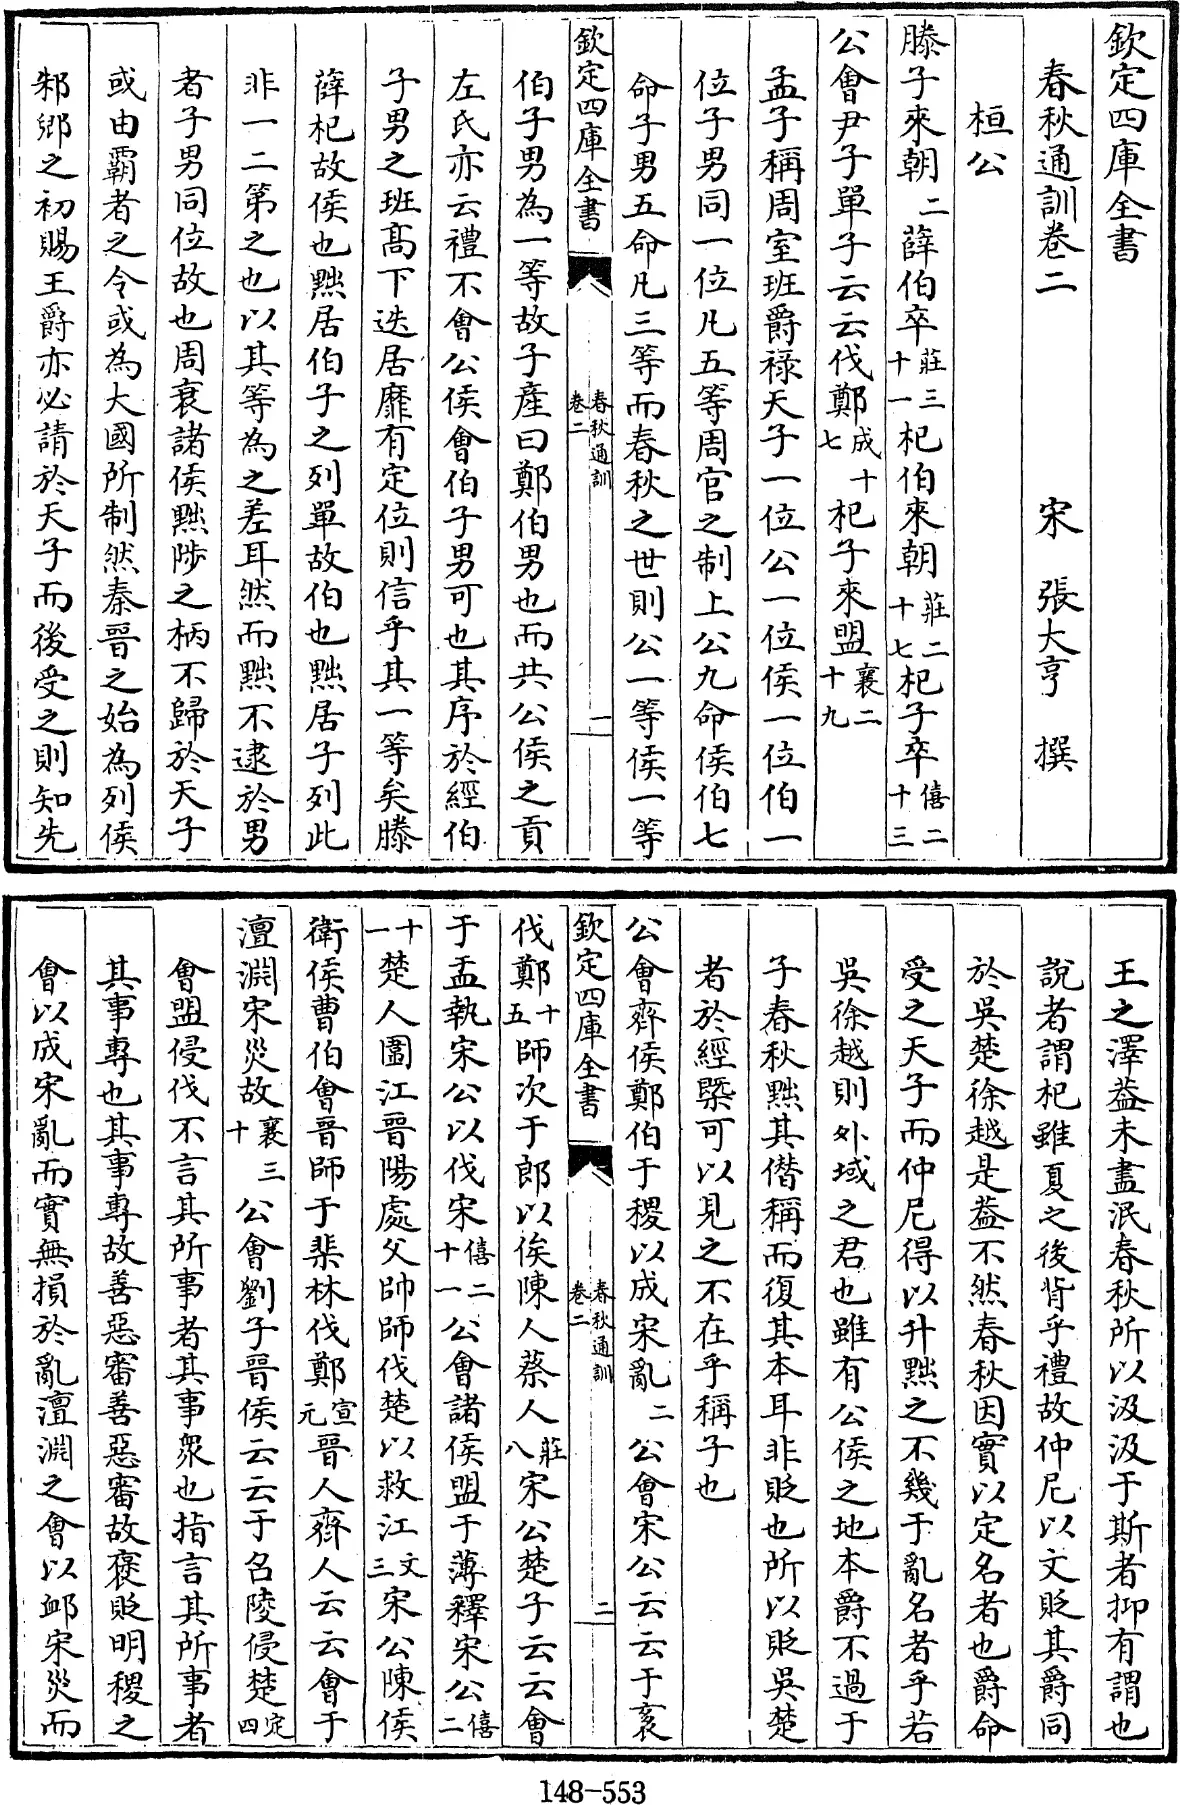 欽定四庫全書
春秋通訓卷二
宋 張大亨 撰
桓公
滕子來朝二薛伯卒莊三十一杞伯來朝莊二十七杞子卒僖二十三
公會尹子單子云云伐鄭成十七杞子來盟襄二十九
孟子稱周室班爵祿天子一位公一位侯一位伯一
位子男同一位凡五等周官之制上公九命侯伯七
命子男五命凡三等而春秋之世則公一等侯一等
欽定四庫全書 春秋通訓 卷二 一
伯子男為一等故子產曰鄭伯男也而共公侯之貢
左氏亦云禮不會公侯會伯子男可也其序於經伯
子男之班高下迭居靡有定位則信乎其一等矣滕
薛杞故侯也黜居伯子之列單故伯也黜居子列此
非一二第之也以其等為之差耳然而黜不逮於男
者子男同位故也周衰諸侯黜陟之柄不歸於天子
或由霸者之令或為大國所制然秦晉之始為列侯
邾郳之初賜王爵亦必請於天子而後受之則知先
王之澤葢未盡泯春秋所以汲汲于斯者抑有謂也
說者謂杞雖夏之後背乎禮故仲尼以文貶其爵同
於吳楚徐越是葢不然春秋因實以定名者也爵命
受之天子而仲尼得以升黜之不幾于亂名者乎若
吳徐越則外域之君也雖有公侯之地本爵不過于
子春秋黜其僭稱而復其本耳非貶也所以貶吳楚
者於經槩可以見之不在乎稱子也
公會齊侯鄭伯于稷以成宋亂二公會宋公云云于袤
欽定四庫全書 春秋通訓 卷二 二
伐鄭十五師次于郎以俟陳人蔡人莊八宋公楚子云云會
于盂執宋公以伐宋僖二十一公會諸侯盟于薄釋宋公僖二
十一楚人圍江晉陽處父帥師伐楚以救江文三宋公陳侯
衛侯曹伯會晉師于棐林伐鄭宣元晉人齊人云云會于
澶淵宋災故襄三十公會劉子晉侯云云于召陵侵楚定四
會盟侵伐不言其所事者其事衆也指言其所事者
其事專也其事專故善惡審善惡審故褒貶明稷之
會以成宋亂而實無損於亂澶淵之會以䘏宋災而
148-553